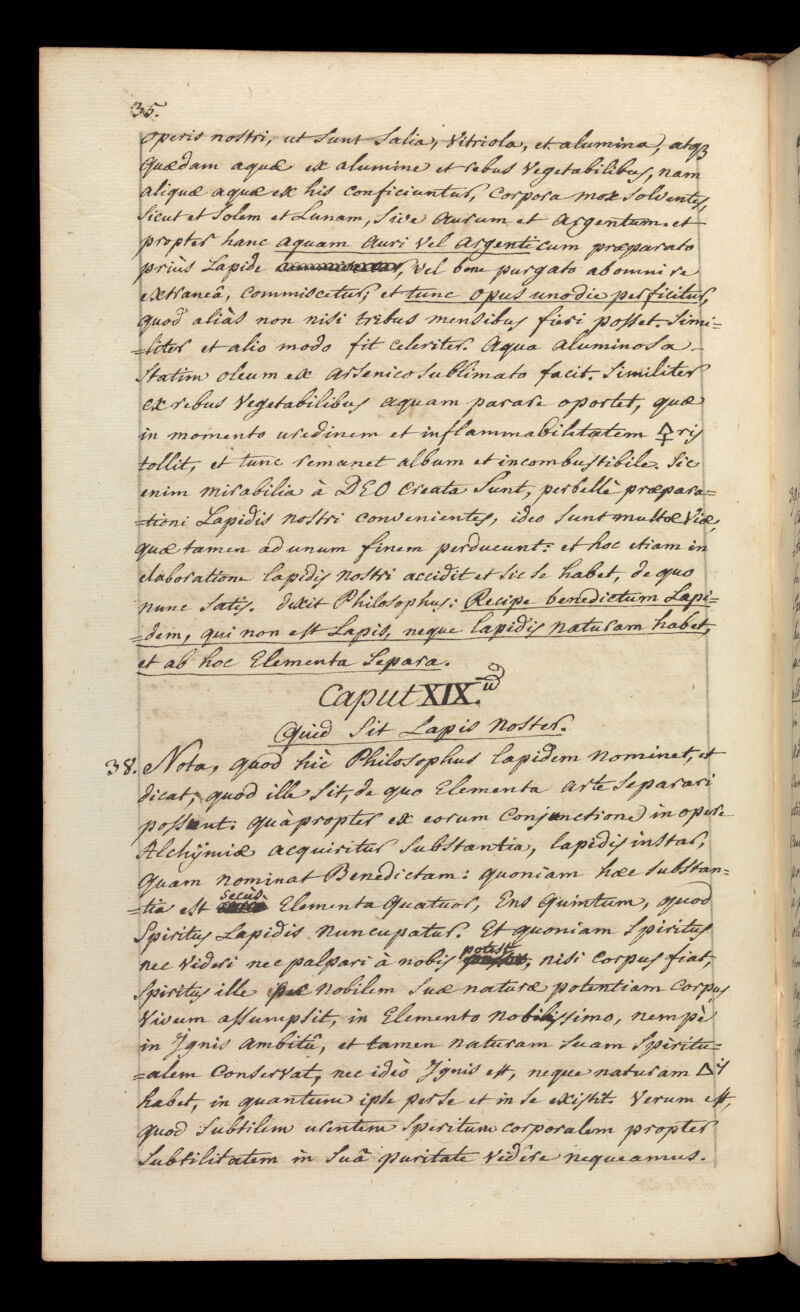 35.
operis nostri, ut sunt salia, Vitriola, et alumina, atq3
quædam aquæ ex alumine et rebus Vegetabilibus, nam
aliquæ aquæ ex his conficiuntur, Corpora mox solventes,
sicut et Solem et Lunam, sive Aurum et Argentum. et
propter hanc aquam Auri Vel Argenti cum præparato
priùs Lapide, vel bene purgato ab omni re
extraneâ, commiscetur; et tunc opus uno die perficitur,
quod aliàs non nisi tribus mensibus fieri posset. Simi=
=liter et alio modo fit celeriter. Aqua aluminosa
statim oleum ex Arsenico sublimato facit. Similiter
ex rebus Vegetabilibus aquam parare oportet, quæ
in momento uredinem et inflammabilitatem 🜍ris
tollit, et tunc remanet album et incombustibile. Sic
enim mirabilia à DEO Creata Sunt, perbellè præpara=
=tioni Lapidis nostri convenientes, ideo Sunt multæ Viæ,
quæ tamen ad unum finem perducunt: et hoc etiam in
elaboratione lapidis nostri accidit et sic se habet, de quo
nunc satis. dixit Philosophus: Recipe benedictum Lapi=
=dem, qui non est Lapis, neque lapidis naturam habet,
et ab hoc Elementa Separa.
Caput XIX.ũ
Quid Sit Lapis Noster.
38. Nota, quod hîc Philosophus lapidem nominet, et
dicat, quod ille sit, de quo Elementa arte Separari
possunt. quàpropter ex eorum Conjunctione in opere
Alchÿmiæ acquiritur Substantia, lapidis instar,
quam nominat Benedictam: quoniam hæc substan=
=tia est secus Elementa Quatuor, Ens Quintum, quod
Spiritus Lapidis nuncupatur. Et quoniam Spiritus
nec videri nec palpari à nobis potest, nisi Corpus fiat,
Spiritus ille nobilem suæ naturæ potentiam Corpus
Vivum assumpsit, in Elemento nobilissimo, nempè
in Ignis ambitû, et tamen naturam suam Spiritu=
=alem Conservat, nec ideò Ignis est, neque naturam △is
habet, in quantum ipse per se et in se existit. Verum est,
quod Subtilem urentem Speritum corporalem propter
Subtilitatem in Suâ puritate vidêre nequeamus.